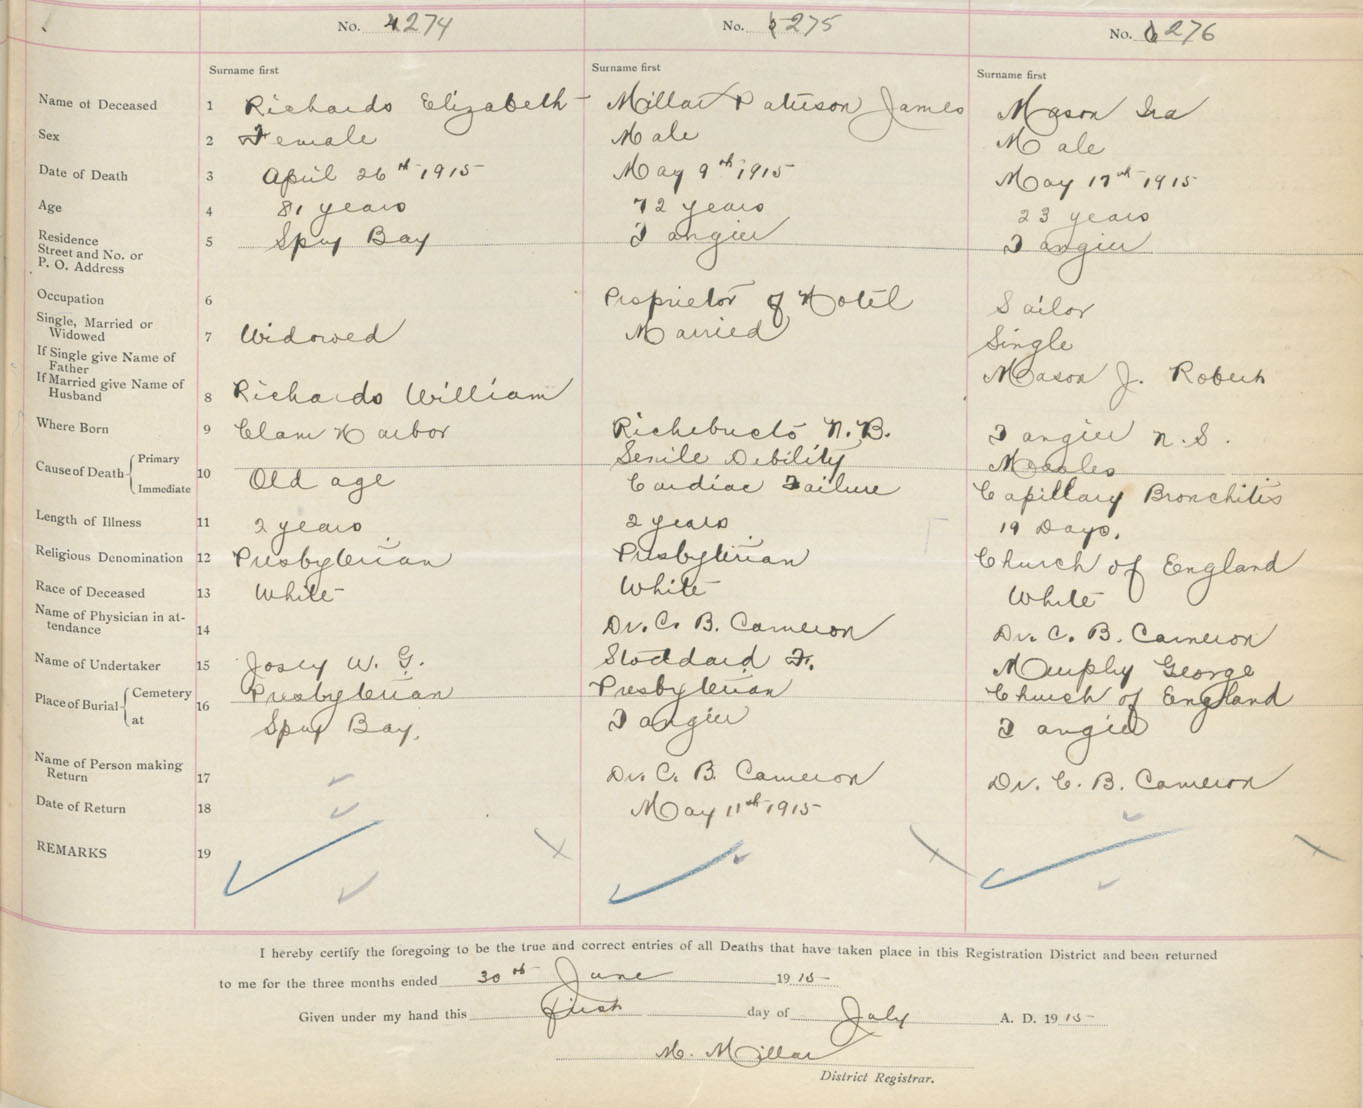 No. 4 274 No. 5 275 No. 6 276
Surname first Surname first Surname first
Name of Deceased 1 Richards Elizabeth Millar Pattison James Mason Ira
Sex 2 Female Male Male
Date of Death 3 April 26th 1915 May 9th 1915 May 17th 1915
Age 4 81 years 72 years 23 years
Residence
Street and No. or
P. O. Address 5 Spry Bay Tangier Tangier
Occupation 6 Proprietor of Hotel Sailor
Single, Married or
Widowed 7 Widowed Married Single
If Single give Name of
Father Mason J. Robert
If Married give Name of
Husband 8 Richards William
Where Born 9 Clam Harbor Richebucto N.B. Tangier N.S.
Cause of Death Primary 10 Senile Debility Measles
Immediate Old age Cardiac Failure Capillary Bronchitis
Length of Illness 11 2 years 2 years 19 Days.
Religious Denomination 12 Presbyterian Presbyterian Church of England
Race of Deceased 13 White White White
Name of Physician in at-
tendance 14 Dr. C. B. Cameron Dr. C. B. Cameron
Name of Undertaker 15 Josey W. G. Stoddard F. Murphy George
Place of Burial Cemetery 16 Presbyterian Presbyterian Church of England
at Spry Bay. Tangier Tangier
Name of Person making
Return 17 Dr. C. B. Cameron Dr. C. B. Cameron
Date of Return 18 May 11th 1915
REMARKS 19
I hereby certify the foregoing to be the true and correct entries of all Deaths that have taken place in this Registration District and been returned
to me for the three months ended 30th June 1915
Given under my hand this first day of July A. D. 1915
M. Millar
District Registrar.